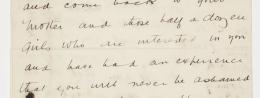 and come back to your
Mother and those half a dozen
Girls who are interested in you
and have had an experience
that you will never be ashamed